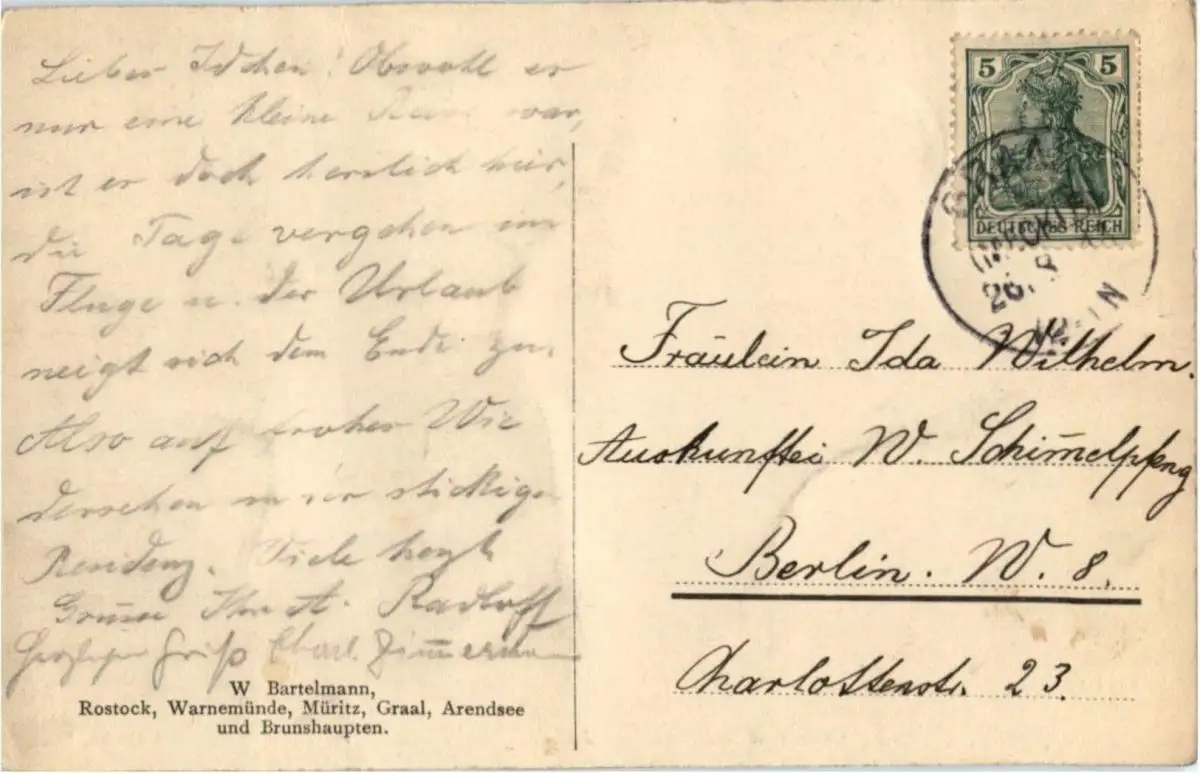 Liebes Idchen! Obwohl es
nur eine kleine Reise war,
ist es doch herrlich hier,
die Tage vergehen im
Fluge u. der Urlaub
neigt sich dem Ende zu.
Also auf frohes Wie
dersehen in der stickigen
Residenz. Viele herzl
Grüsse Ihr A. Radloff
Gruß Charl. Zimmermann
W Bartelmann,
Rostock, Warnemünde, Müritz, Graal, Arendsee
und Brunshaupten.
5 5
DEUTSCHES REICH
GRAAL
(MECKLB)
26. 8
Fräulein Ida Wilhelm.
Auskunftei W. Schim̅elpfeng
Berlin. W. 8.
Charlottenstr. 23.